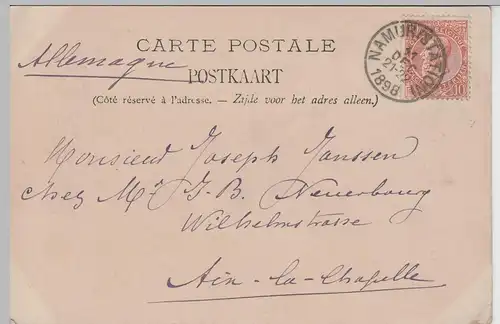 CARTE POSTALE
Allemagne
POSTKAART
(Côté réservé à l'adresse. — Zijde voor het adres alleen.)
NAMUR (STATION)
21-22
1898
10
Monsieur Joseph Janssen
chez Mr J-B. Neuerbourg
Wilhelmstrasse
Aix-la-Chapelle